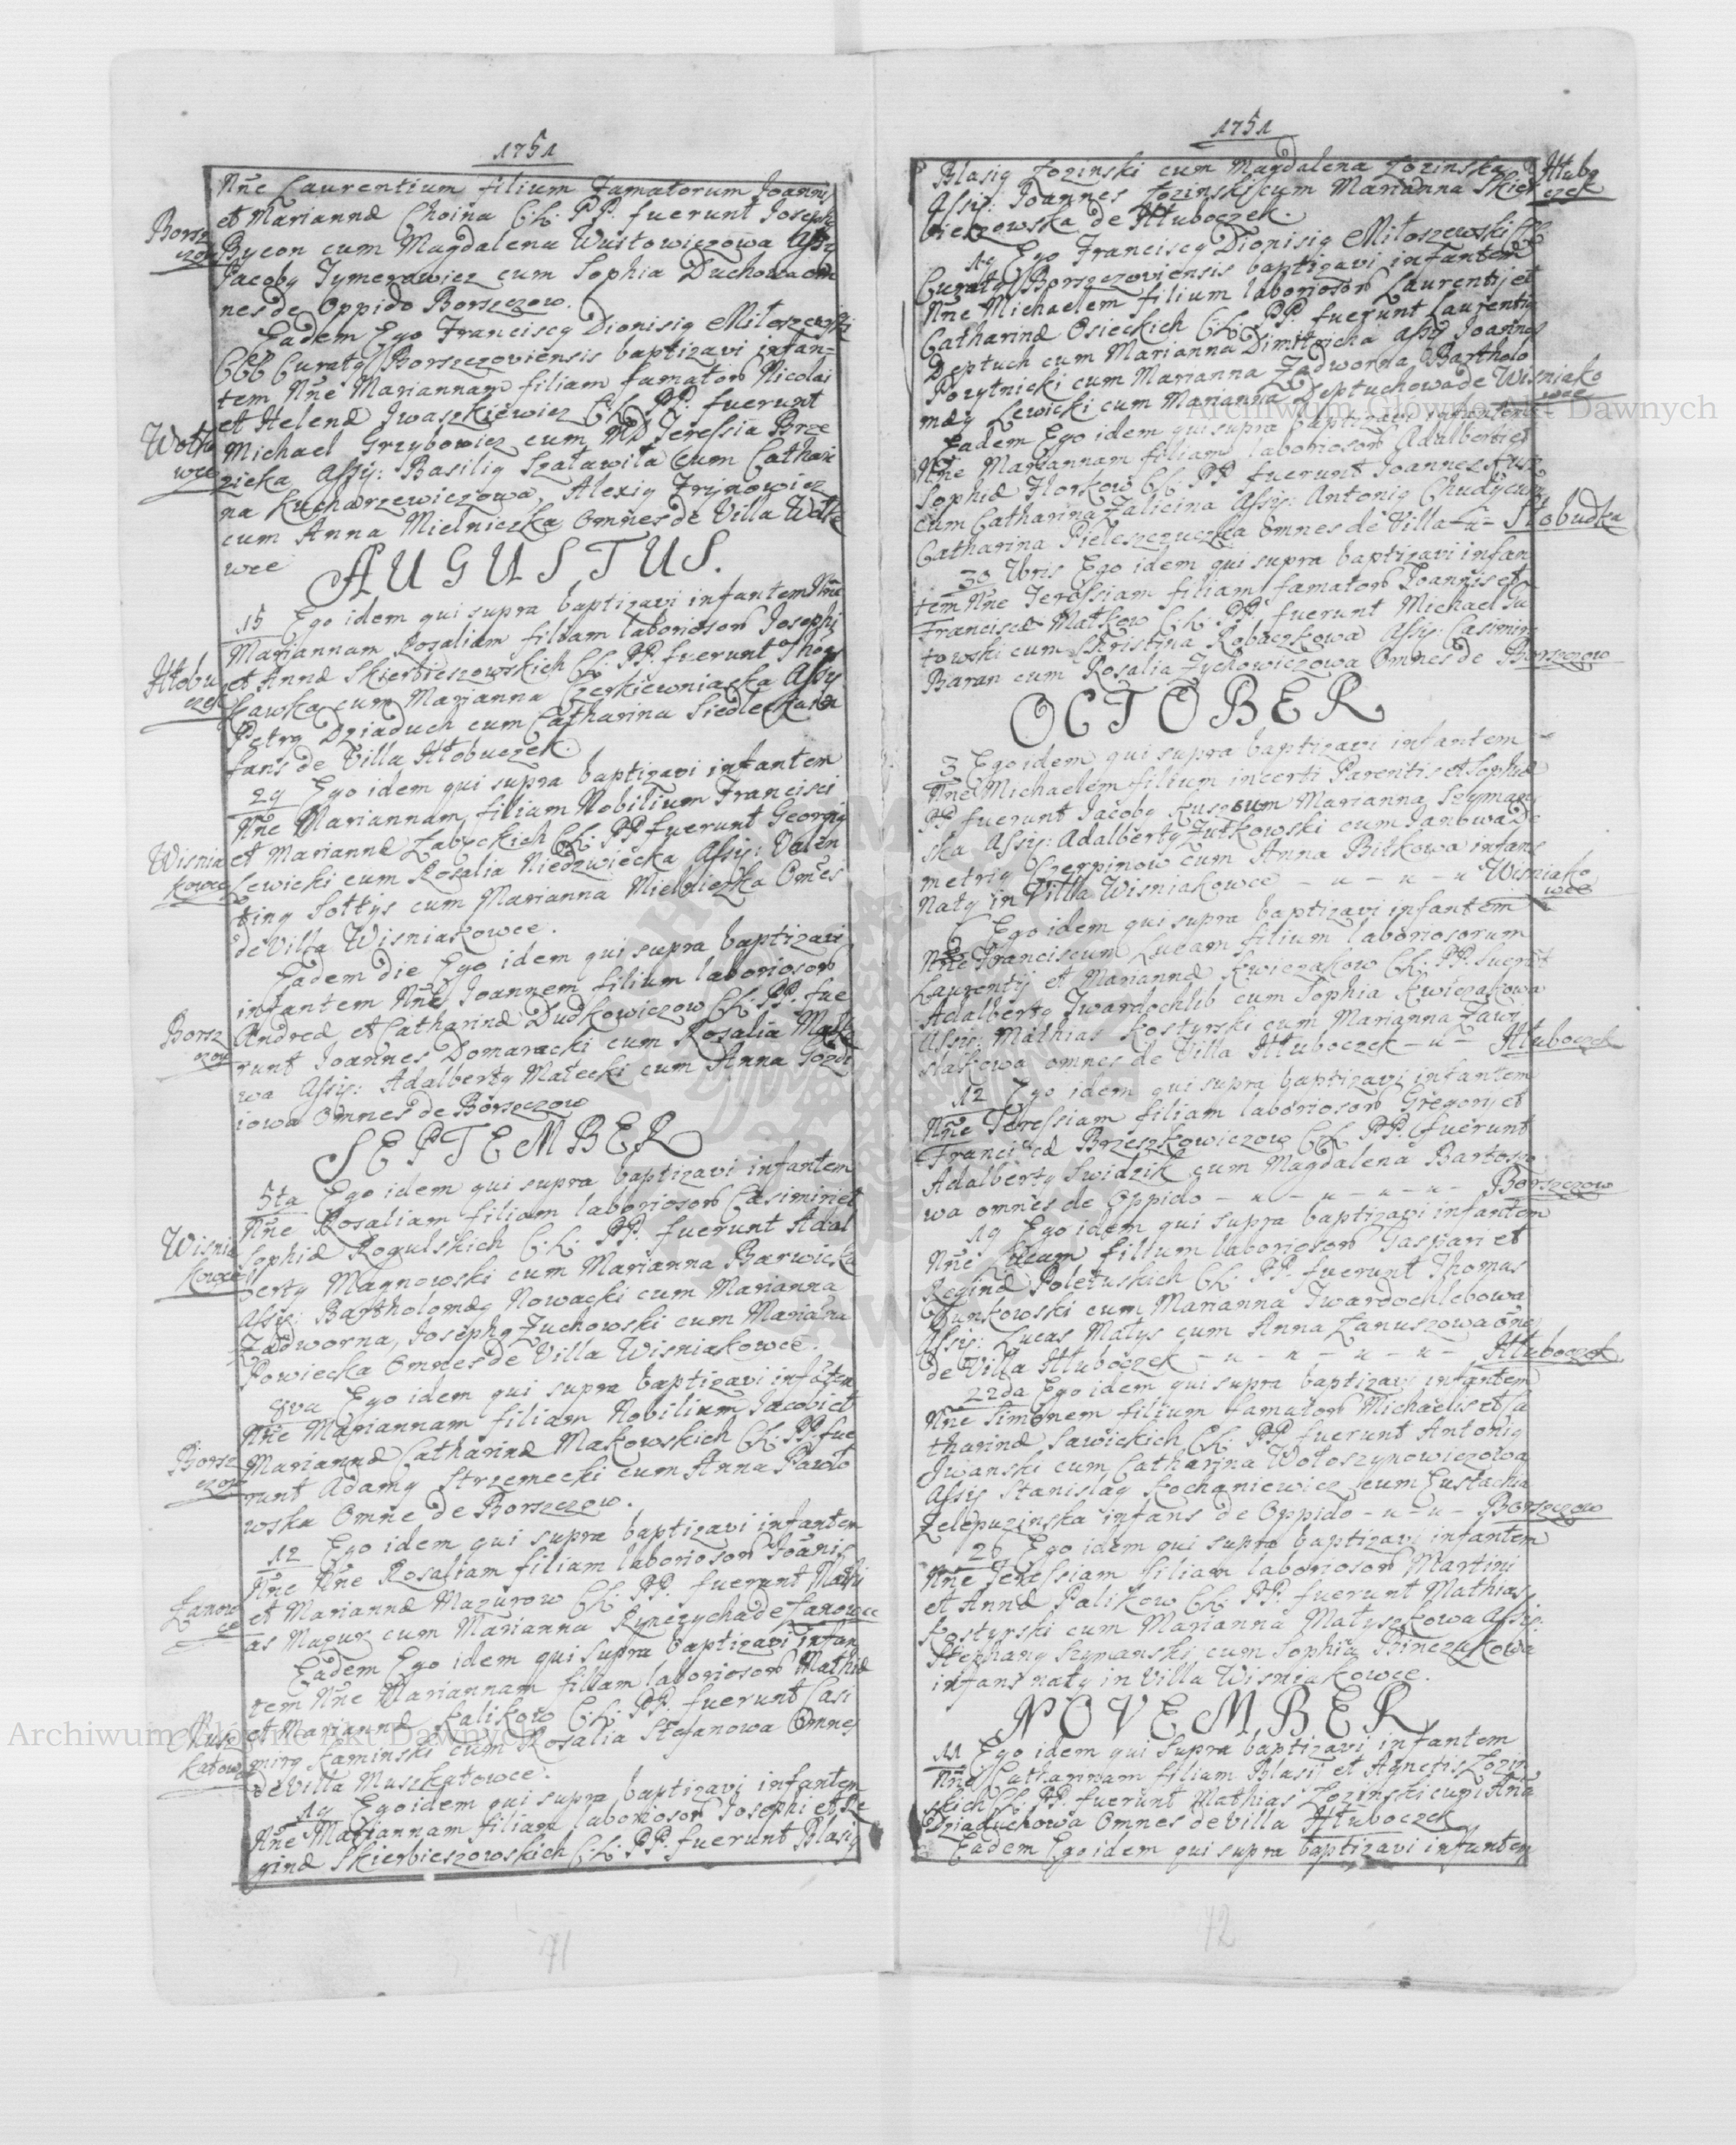 1751
Nne Laurentium filium Famatorum Joannis
et Mariannæ Choina C:L: PP. fuerunt Joseph
Borsz
czow
Bycon cum Magdalena Wuitowiczowa Assy
Jacoby Tymerawicz cum Sophia Duchowa om
nes de Oppido Borszczow.
Eadem Ego Franciscq Dionisiq Miloszewski
Curatq Borszczoviensis baptizavi infan=
tem Nne Mariannam filiam famator Nicolai
et Helenæ Jwaszkiewicz C:L: PP. fuerunt
Wołko
wce
Michael Grzybowicz cum MD Teressia Brze
zicka Assy: Basiliq Szaławiła cum Cathari
na Kucharzewiczowa, Alexiq Trynowicz
cum Anna Mielniczka Omnes de Villa Wołko
wce
AUGUSTUS.
15 Ego idem qui supra baptizavi infantem Nne
Mariannam Rosaliam filiam laborioson Josephi
et Annæ Skierbieszowskich C:L: PP. fuerunt Thom
Hłobu
czek
Kawka cum Marianna Czerkiewniacka Assy
Petrq Dziaduch cum Catharina Siedlecka in
fans de Villa Hłobuczek.
29 Ego idem qui supra baptizavi infantem
Nne Mariannam filiam Nobilium Francisci
et Mariannæ Zabęckich C:L: PP fuerunt Georgiq
Wisnia
kowce
Lewicki cum Rosalia Niedzwiecka Assy: Valen
tinq Sołtys cum Marianna Mielniczka Omes
de Villa Wisniakowce.
Eadem die Ego idem qui supra baptizavi
infantem Nne Joannem filium laborioson
Andreæ et Catharinæ Dudkowiczow C:L: PP. fue
Borsz
czow
runt Joannes Domaracki cum Rosalia Małk
wa Assy: Adalbertq Małecki cum Anna Gozdz
iowa Omnes de Borszczow
SEPTEMBER
5ta Ego idem qui supra baptizavi infantem
Nne Rosaliam filiam laborioson Casimiri et
Sophiæ Rogulskich C:L: PP. fuerunt Adal
Wisnia
kowce
bertq Maynowski cum Marianna Barwicka
Assy: Bartholomæq Nowacki cum Marianna
Zadworna, Josephq Zuchowski cum Mariana
Powiecka Omnes de Villa Wisniakowce.
8va Ego idem qui supra baptizavi infatem
Nne Mariannam filiam Nobilium Jacobi et
Mariannæ Catharinæ Makowskich C:L: PP. fue
Borsz
czow
runt Adamq Strzemecki cum Anna Pawło
wska Omne de Borszczow.
12 Ego idem qui supra baptizavi infantem
Nne Nne Rosaliam filiam laborioson Joanis
et Mariannæ Mazurow C:L: PP. fuerunt Mathi
Łanow
ce
as Mazur cum Marianna Rynczycha de Łanowce
Eadem Ego idem qui supra baptizavi infan
tem Nne Mariannam filiam laborioson Mathiæ
et Mariannæ Kalikow C:L: PP. fuerunt Casi
Musz
katow
mirq Kaminski cum Rosalia Stefanowa Omnes
de Villa Muszkatowce.
19 Ego idem qui supra baptizavi infantem
Nne Mariannam filiam laborioson Josephi et Re
ginæ Skierbieszowskich C:L: PP. fuerunt Blasiq
71
1751
Blasiq Łozinski cum Magdalena Łozinska
Hłubo
czek
Assy: Joannes Łozinski cum Marianna Skier
bieszowska de Hłuboczek.
19 Ego Franciscq Dionisiq Miłoszewski
Curatq Borszczoviensis baptizavi infantem
Nne Michaelem filium laborioson Laurentij et
Catharinæ Osieckich C:L: PP fuerunt Laurentiq
Deptuch cum Marianna Dimitricha Assy Joannes
Porytnicki cum Marianna Zadworna Bartholo
mæq Lewicki cum Marianna Deptuchowa de Wisniako
wce
Eadem Ego idem qui supra baptizavi infantem
Nne Mariannam filiam laborioson Adalberti et
Sophiæ Florkow C:L: PP. fuerunt Joannes Kusz
cum Catharina Zalicina Assy: Antoniq Chudy cum
Catharina Pieleszczuczka Omnes de Villa - u - Słobudka
30 7bris Ego idem qui supra baptizavi infan
tem Nne Teressiam filiam famator Joannis et
Franciscæ Małkow C:L: PP. fuerunt Michael Gu
towski cum Khristina Robaczkowa Assy: Casimirq
Baran cum Rosalia Zychowiczowa Omnes de Borszczow
OCTOBER
3 Ego idem qui supra baptizavi infantem
Nne Michaelem filium incerti Parentis et Sophiæ
PP fuerunt Jacobq Kusz cum Marianna Szyman
ska Assy: Adalbertq Zułkowski cum Janowa De
metriq Czerpinow cum Anna Bilkowa infans
natq in Villa Wisniakowce - u - u - u Wisniako
wce
6 Ego idem qui supra baptizavi infantem
Nne Franciscum Lucam filium laboriosorum
Laurentij et Mariannæ Kwiczakow C:L: PP. fuerut
Adalbertq Twardochlib cum Sophia Kwiczakowa
Assy: Mathias Kostyrski cum Marianna Zawi
slakowa omnes de Villa Hłuboczek - u - Hłuboczek
12 Ego idem qui supra baptizavi infantem
Nne Teressiam filiam laborioson Gregorij et
Franciscæ Brzeszkowiczow C:L: PP. fuerunt
Adalbertq Swidzik cum Magdalena Bartoszo
wa omnes de Oppido - u - u - u - u - Borszczow
19 Ego idem qui supra baptizavi infantem
Nne Lucam filium laborioson Gaspari et
Reginæ Poletuskich C:L: PP. fuerunt Thomas
Gunkowski cum Marianna Twardochlebowa
Assy: Lucas Małys cum Anna Zanuszowa oms
de Villa Hłuboczek - u - u - u - u - Hłuboczek
22da Ego idem qui supra baptizavi infantem
Nne Simonem filium famator Michaelis et Ca
tharinæ Sawickich C:L: PP fuerunt Antoniq
Jwanski cum Catharina Wołoszynowiczowa
Assy Stanislaq Kochaniewicz cum Eustachia
Zelepuzinska infans de Oppido - u - u - Borszczow
26 Ego idem qui supra baptizavi infantem
Nne Teressiam filiam laborioson Martini
et Annæ Palikow C:L: PP. fuerunt Mathias
Kostyrski cum Marianna Małyszkowa Assis:
Stephanq Szymanski cum Sophia Binczakowa
infans natq in Villa Wisniakowce.
NOVEMBER
11 Ego idem qui supra baptizavi infantem
Nne Catharinam filiam Blasij et Agnetis Łozin
skich C:L: PP. fuerunt Mathias Łozinski cum Ana
Dziaduchowa Omnes de Villa Hłuboczek
Eadem Ego idem qui supra baptizavi infantem
72
Archiwum Główne Akt Dawnych
Archiwum Główne Akt Dawnych